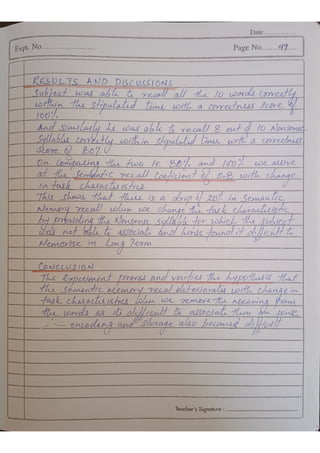 Date ............
Expt. No. ..................
Page No. ...... 49 ...
RESULTS AND DISCUSSIONS
Subject was able to recall all the 10 words correctly
within the stipulated time with a correctness score of
100%
And similarly he was able to recall 8 out of 10 Nonsense
Syllables correctly within stipulated time with a correctness
score of 80%
On comparing the two ie 80% and 100% we arrive
at the semantic recall coeficient of 0.8 with change
in task characteristics
This shows that there is a drop of 20% in semantic
Memory recall when we change the task characteristic
by providing the Nonsense syllable for which the subject
was not able to associate and hence found it difficult to
Memorise in Long Term
CONCLUSION
The Experiment proves and verifies the hypothesis that
the semantic memory recall deteriorates with change in
task characteristics when we remove the meaning from
the words as its difficult to associate them
encoding and storage also becomes difficult
Teacher's Signature : ______________